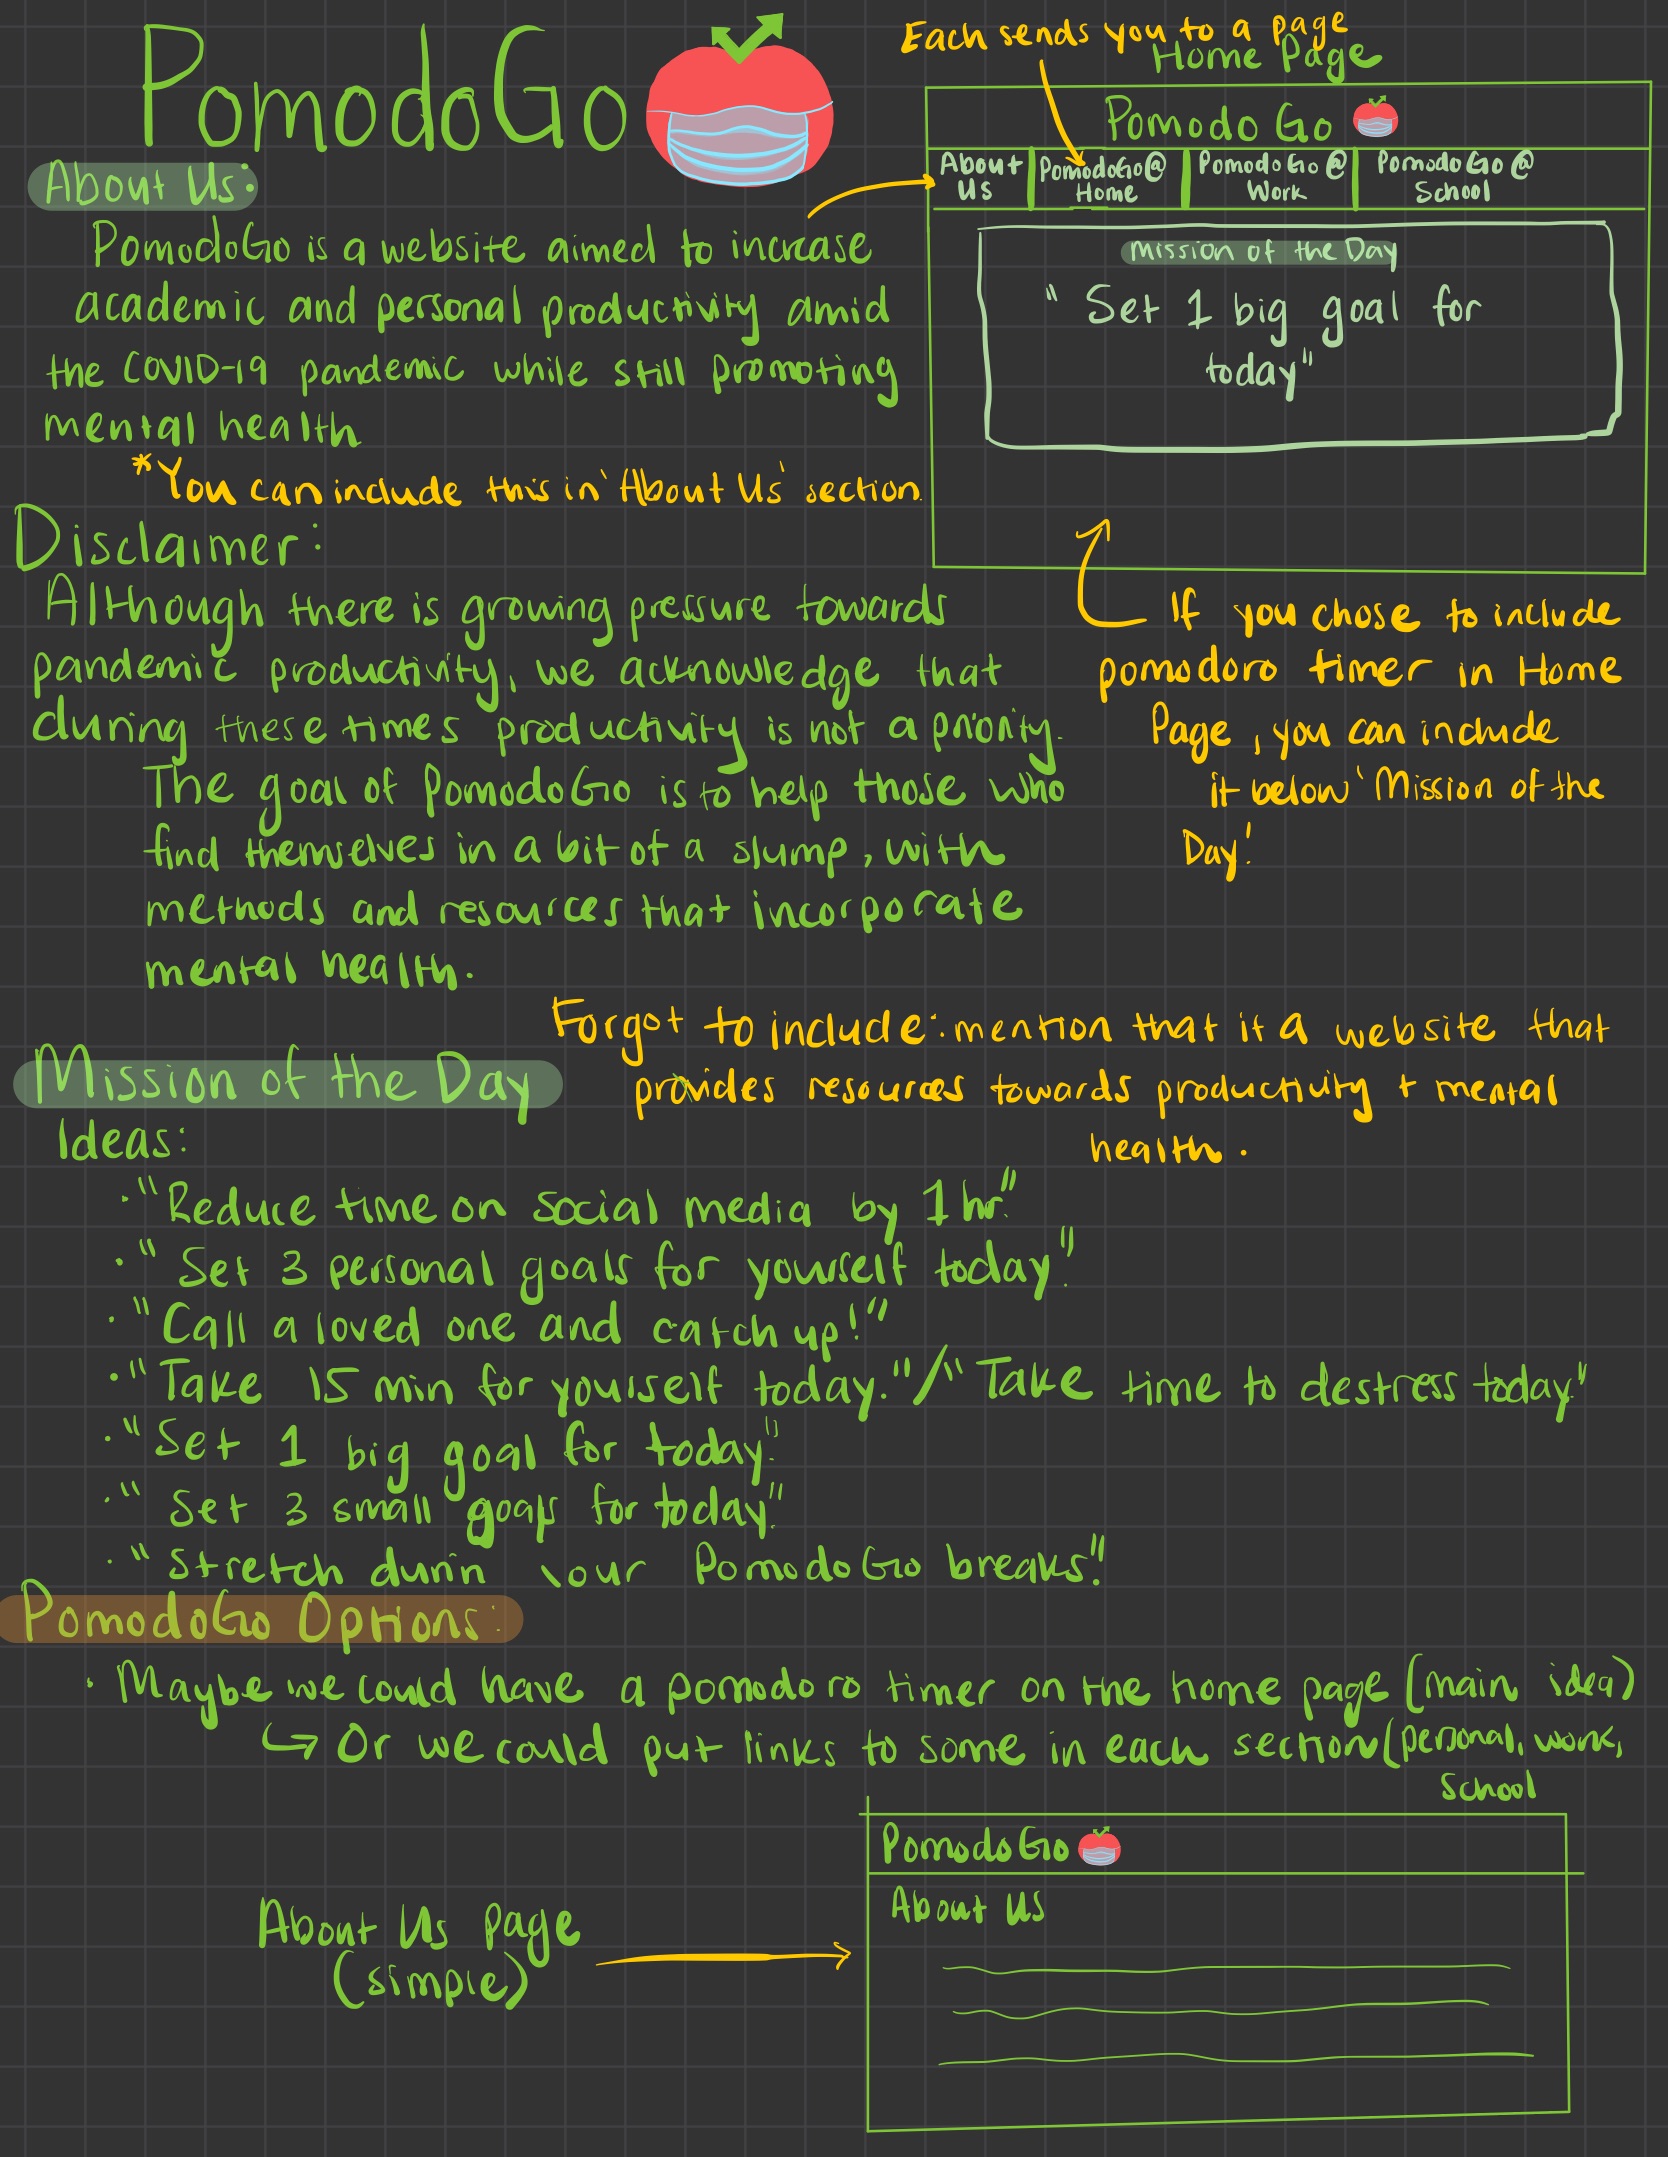 PomodoGo
About Us:
PomodoGo is a website aimed to increase
academic and personal productivity amid
the COVID-19 pandemic while still promoting
mental health
*You can include this in 'About Us' section.
Each sends you to a page
Home Page
Pomodo Go
About Us
PomodoGo@ Home
PomodoGo@ Work
PomodoGo@ School
Mission of the Day
"Set 1 big goal for
today"
If you chose to include
pomodoro timer in Home
Page, you can include
it below 'Mission of the
Day'
Disclaimer:
Although there is growing pressure towards
pandemic productivity, we acknowledge that
during these times productivity is not a priority.
The goal of PomodoGo is to help those who
find themselves in a bit of a slump, with
methods and resources that incorporate
mental health.
Forgot to include: mention that it a website that
provides resources towards productivity + mental
health.
Mission of the Day
Ideas:
· "Reduce time on social media by 1 hr."
· "Set 3 personal goals for yourself today."
· "Call a loved one and catch up!"
· "Take 15 min for yourself today." / "Take time to destress today."
· "Set 1 big goal for today."
· "Set 3 small goals for today."
· "Stretch durin our PomodoGo breaks."
PomodoGo Options:
· Maybe we could have a pomodoro timer on the home page (main idea)
↪ Or we could put links to some in each section (personal, work,
school
About Us Page
(simple)
PomodoGo
About Us